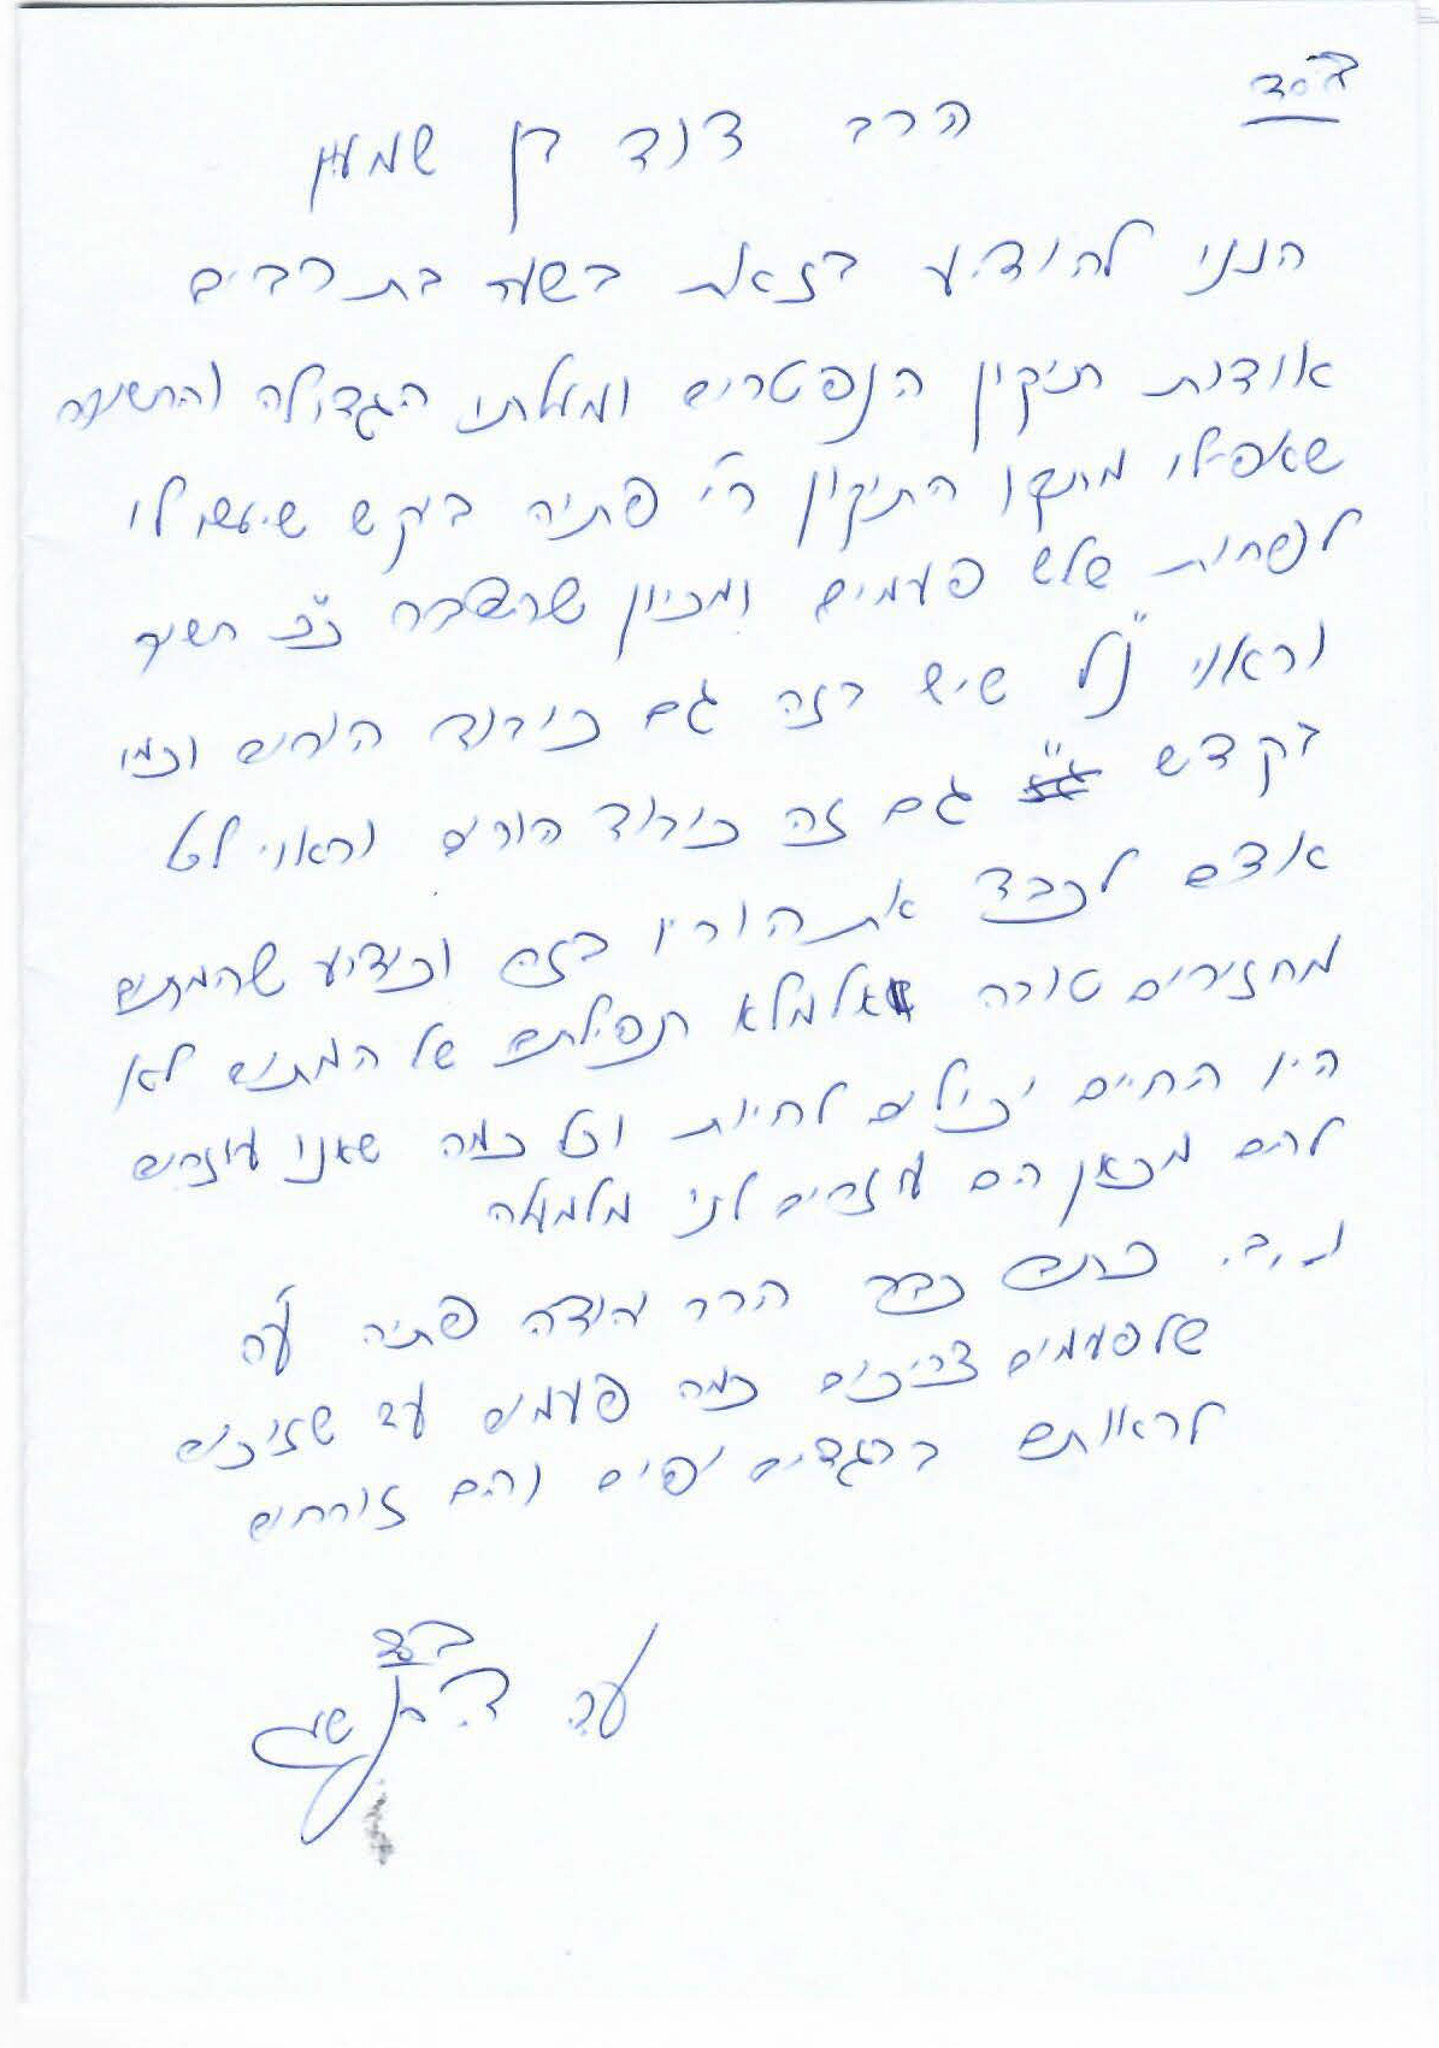 בס"ד
הרב דוד בן שמעון
הנני להודיע בזאת בשער בת רבים
אודות תיקון הנפטרים ומעלתו הגדולה והחשובה
שאפילו מתקן התיקון ר"י פתיה ביקש שיעשו לו
לפחות שלש פעמים ומכיון שהדבר כ"כ חשוב
וראוי נ"ל שיש בזה גם כיבוד הורים וכמו
בקדש גם זה כיבוד הורים וראוי לכל
אדם לכבד את הוריו בזה וכידוע שהמתים
מחזירים טובה אלמלא תפילתם של המתים לא
היו החיים יכולים לחיות וכל כמה שאנו עוזרים
להם מכאן הם עוזרים לנו מלמעלה
נ.ב. כתב כבר הרב יהודה פתיה ע"ה
שלפעמים צריכים כמה פעמים עד שזוכים
לראותם בבגדים יפים והם זורחים
בס"ד
ע"ה ד. בן